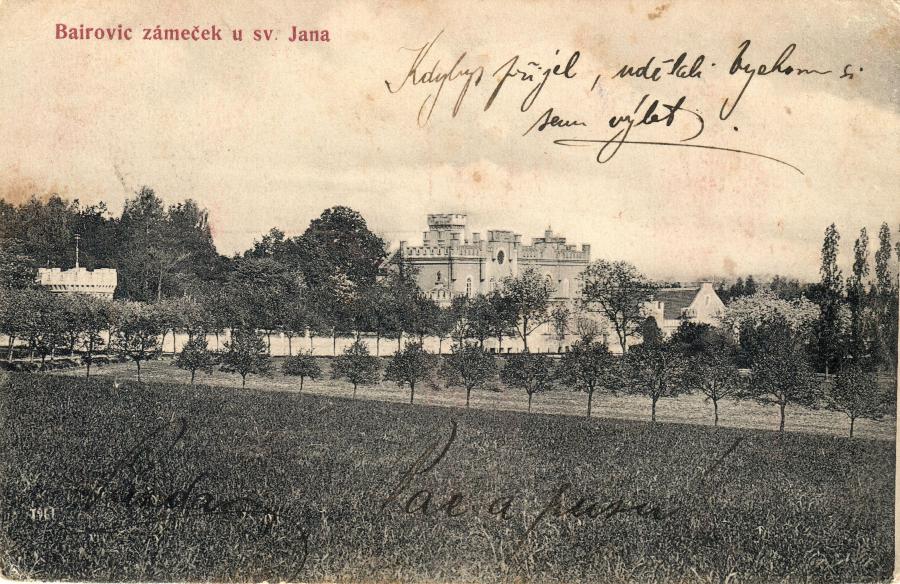 Bairovic zámeček u sv. Jana
Kdybys přijel, udělali bychom si
sem výlet.
Pac a pusu